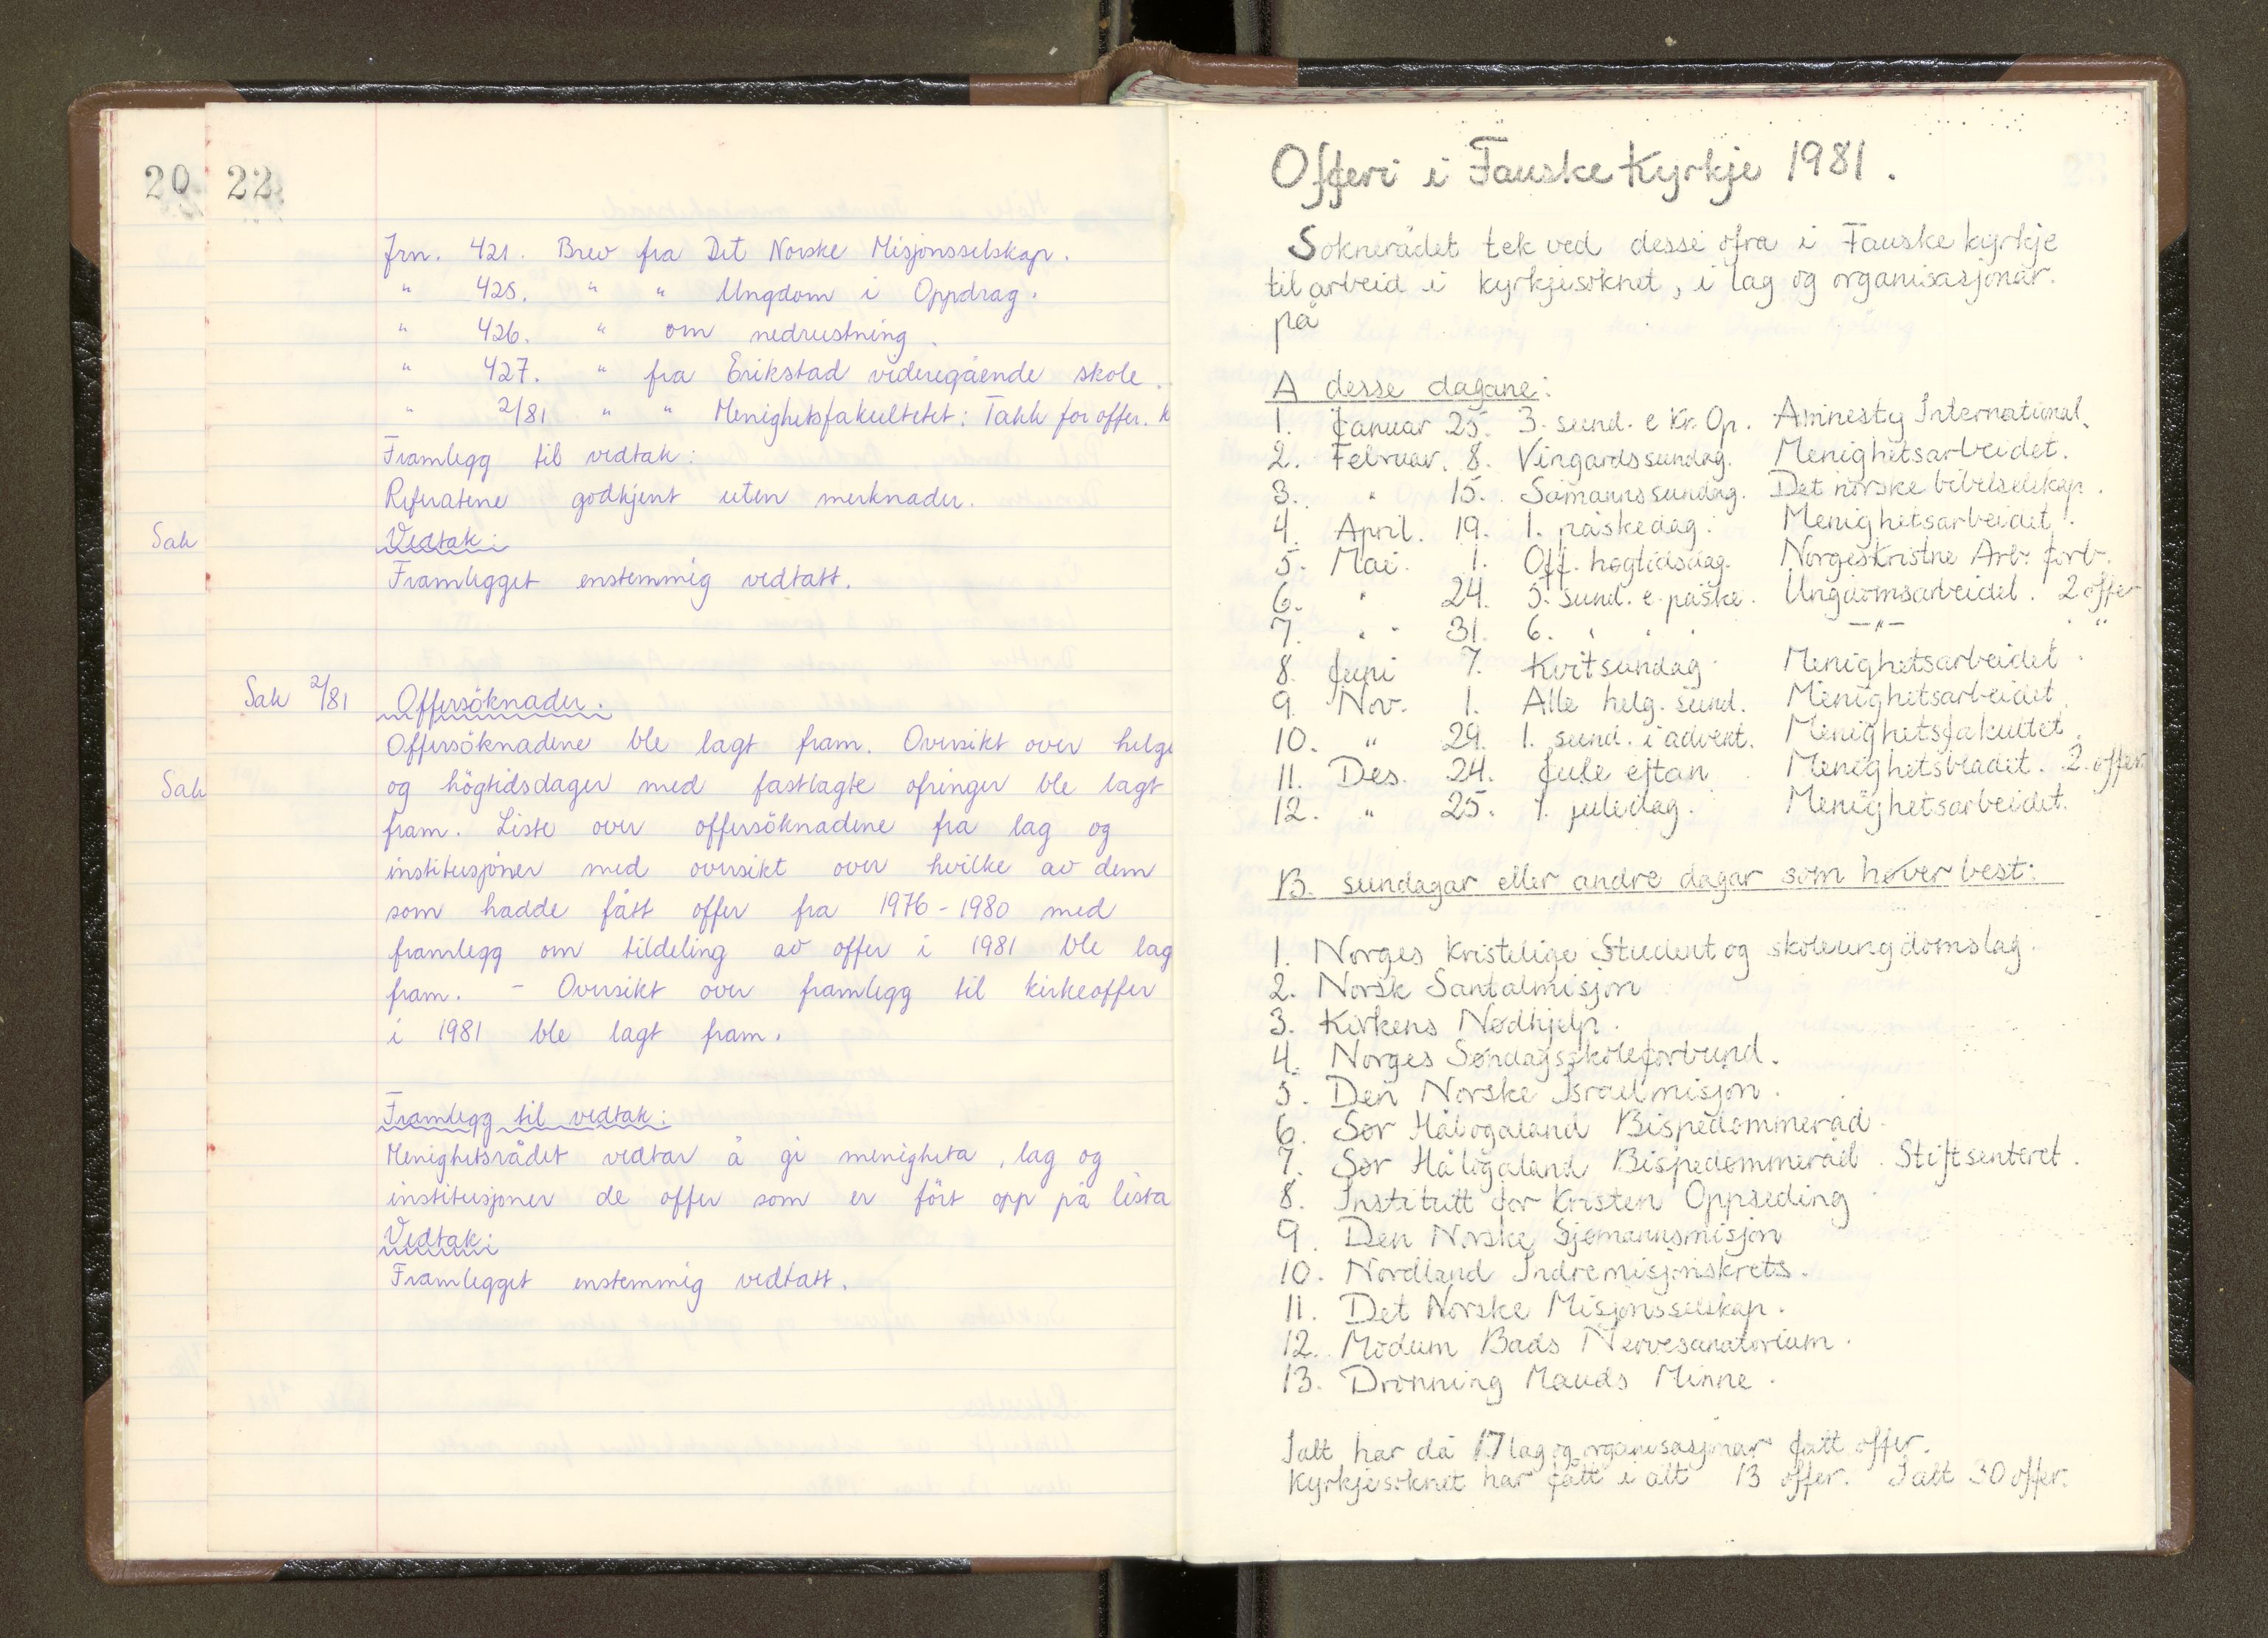 20 22
Jrn. 421. Brev fra Det Norske Misjonsselskap.
" 425. " " Ungdom i Oppdrag.
" 426. " om nedrustning.
" 427. " fra Erikstad videregående skole.
" 2/81 " " Menighetsfakultetet: Takk for offer. k
Framlegg til vedtak:
Referatene godkjent uten merknader.
Sak
Vedtak:
Framlegget enstemmig vedtatt.
Sak 2/81 Offersöknader.
Offersöknadene ble lagt fram. Oversikt over helge
Sak
og högtidsdager med fastlagte ofringer ble lagt
fram. Liste over offersöknadene fra lag og
institusjoner med oversikt over hvilke av dem
som hadde fått offer fra 1976-1980 med
framlegg om tildeling av offer i 1981 ble lag
fram. - Oversikt over framlegg til kirkeoffer
i 1981 ble lagt fram.
Framlegg til vedtak:
Menighetsrådet vedtar å gi menigheta, lag og
institusjoner de offer som er fört opp på lista
Vedtak:
Framlegget enstemmig vedtatt.
23
Offeri i Fauske Kyrkje 1981.
Soknerådet tek ved desse ofra i Fauske kyrkje
til arbeid i kyrkjesoknet, i lag og organisasjonar.
på
A desse dagane:
1. Januar 25. 3. sund. e Kr. Op. Amnesty International.
2. Februar. 8. Vingardssundag. Menighetsarbeidet.
3. " 15. Såmannssundag. Det norske bibelselskap.
4. April. 19. 1. påskedag. Menighetsarbeidet.
5. Mai. 1. Off. høgtidsdag. Norges Kristne Arb. forb.
6. " 24. 5. sund. e. påske. Ungdomsarbeidet. 2 offer
7. " " 31. 6. " " " —"— " "
8. Juni 7. Kvitsundag. Menighetsarbeidet.
9. Nov. 1. Alle helg. sund. Menighetsarbeidet.
10. " 29. 1. sund. i advent. Menighetsfakultet.
11. Des. 24. Jule eftan Menighetsbladet. 2. offer
12. " 25. 1. juledag. Menighetsarbeidet.
B. sundagar eller andre dagar som høver best:
1. Norges Kristelige Student og skoleungdomslag.
2. Norsk Santalmisjon
3. Kirkens Nødhjelp.
4. Norges Søndagsskoleforbund.
5. Den Norske Israelmisjon.
6. Sør Hålogaland Bispedømmeråd.
7. Sør Hålogaland Bispedømmeråd. Stiftsenteret.
8. Institutt for Kristen Oppseding
9. Den Norske Sjømannsmisjon
10. Nordland Indremisjonskrets.
11. Det Norske Misjonsselskap.
12. Modum Bads Nervesanatorium.
13. Dronning Mauds Minne.
Ialt har då 17 lag og organisasjonar fått offer.
Kyrkjesoknet har fått i alt 13 offer. Ialt 30 offer.